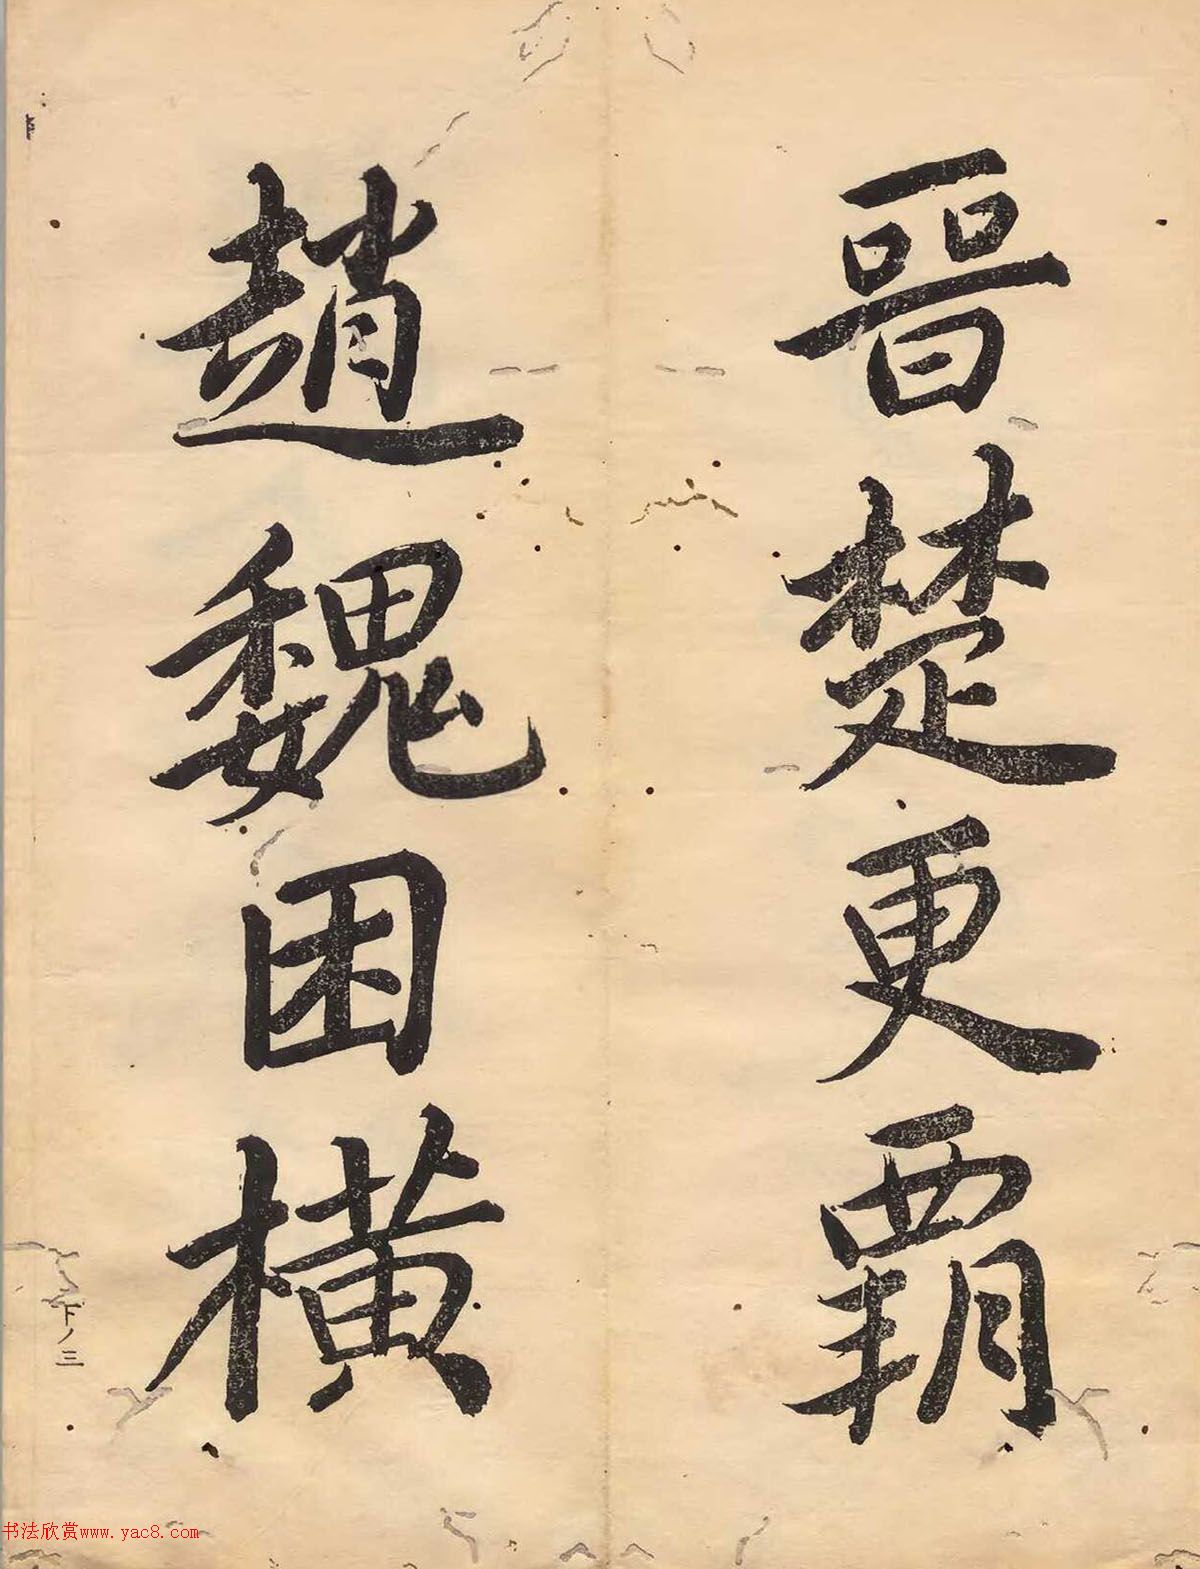 晉楚更覇
趙魏困横
下ノ三
书法欣赏www.yac8.com